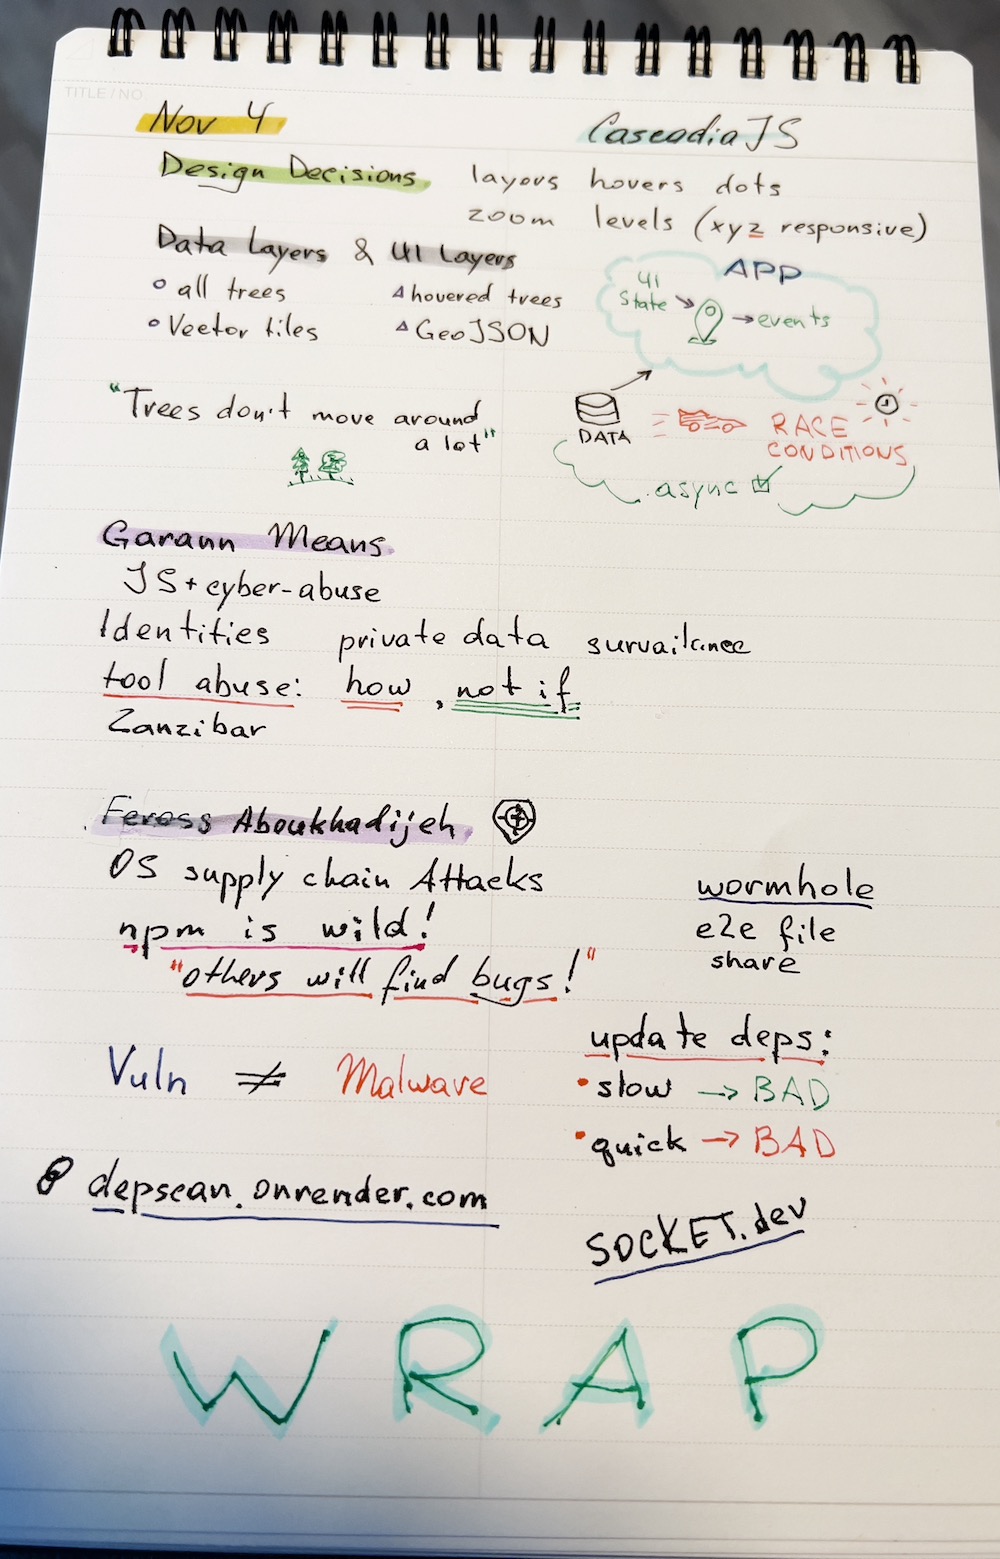 TITLE/NO
Nov 4
CascadiaJS
Design Decisions
layers hovers dots
zoom levels (xyz responsive)
Data Layers & UI Layers
° all trees
△ hovered trees
° Vector tiles
△ GeoJSON
APP
UI
State → → events
"Trees don't move around
a lot"
DATA
RACE
CONDITIONS
async
Garann Means
JS + cyber-abuse
Identities private data survailance
tool abuse: how, not if
Zanzibar
Feross Aboukhadijeh
OS supply chain Attacks
npm is wild!
"others will find bugs!"
wormhole
e2e file
share
Vuln ≠ Malware
update deps:
• slow → BAD
• quick → BAD
depscan.onrender.com
SOCKET.dev
WRAP